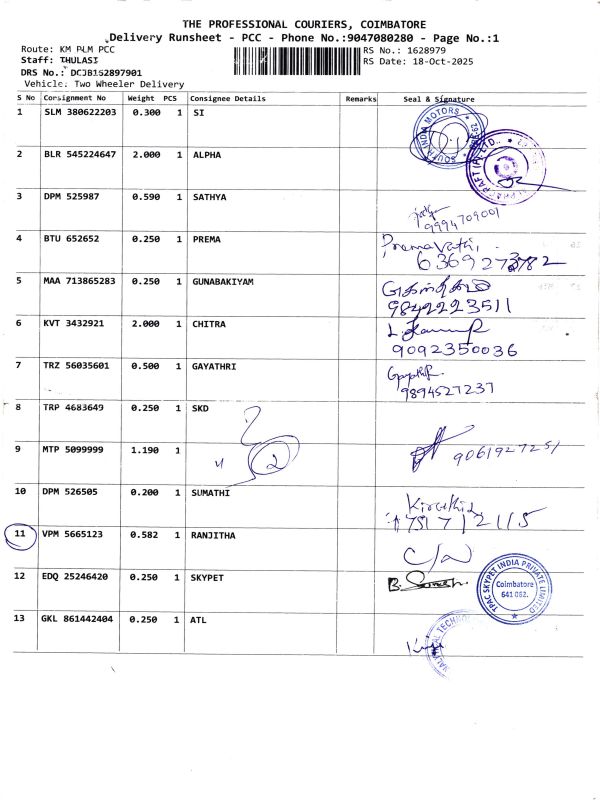 THE PROFESSIONAL COURIERS, COIMBATORE
Delivery Runsheet - PCC - Phone No.:9047080280 - Page No.:1
Route: KM PLM PCC
RS No.: 1628979
Staff: THULASI
RS Date: 18-Oct-2025
DRS No.: DCJB152897901
Vehicle: Two Wheeler Delivery
S No Consignment No Weight PCS Consignee Details Remarks Seal & Signature
1 SLM 380622203 0.300 1 SI
SOUTH INDIA MOTORS
2 BLR 545224647 2.000 1 ALPHA
3 DPM 525987 0.590 1 SATHYA
9994709001
4 BTU 652652 0.250 1 PREMA
Premavathi,
5 MAA 713865283 0.250 1 GUNABAKIYAM
9842223511
6 KVT 3432921 2.000 1 CHITRA
9092350036
7 TRZ 56035601 0.500 1 GAYATHRI
Gayathri.
9894527237
8 TRP 4683649 0.250 1 SKD
9 MTP 5099999 1.190 1
2
9061927251
10 DPM 526505 0.200 1 SUMATHI
11 VPM 5665123 0.582 1 RANJITHA
C/a
12 EDQ 25246420 0.250 1 SKYPET
TPAC SKYPET INDIA PRIVATE LIMITED
Coimbatore
641 062.
13 GKL 861442404 0.250 1 ATL